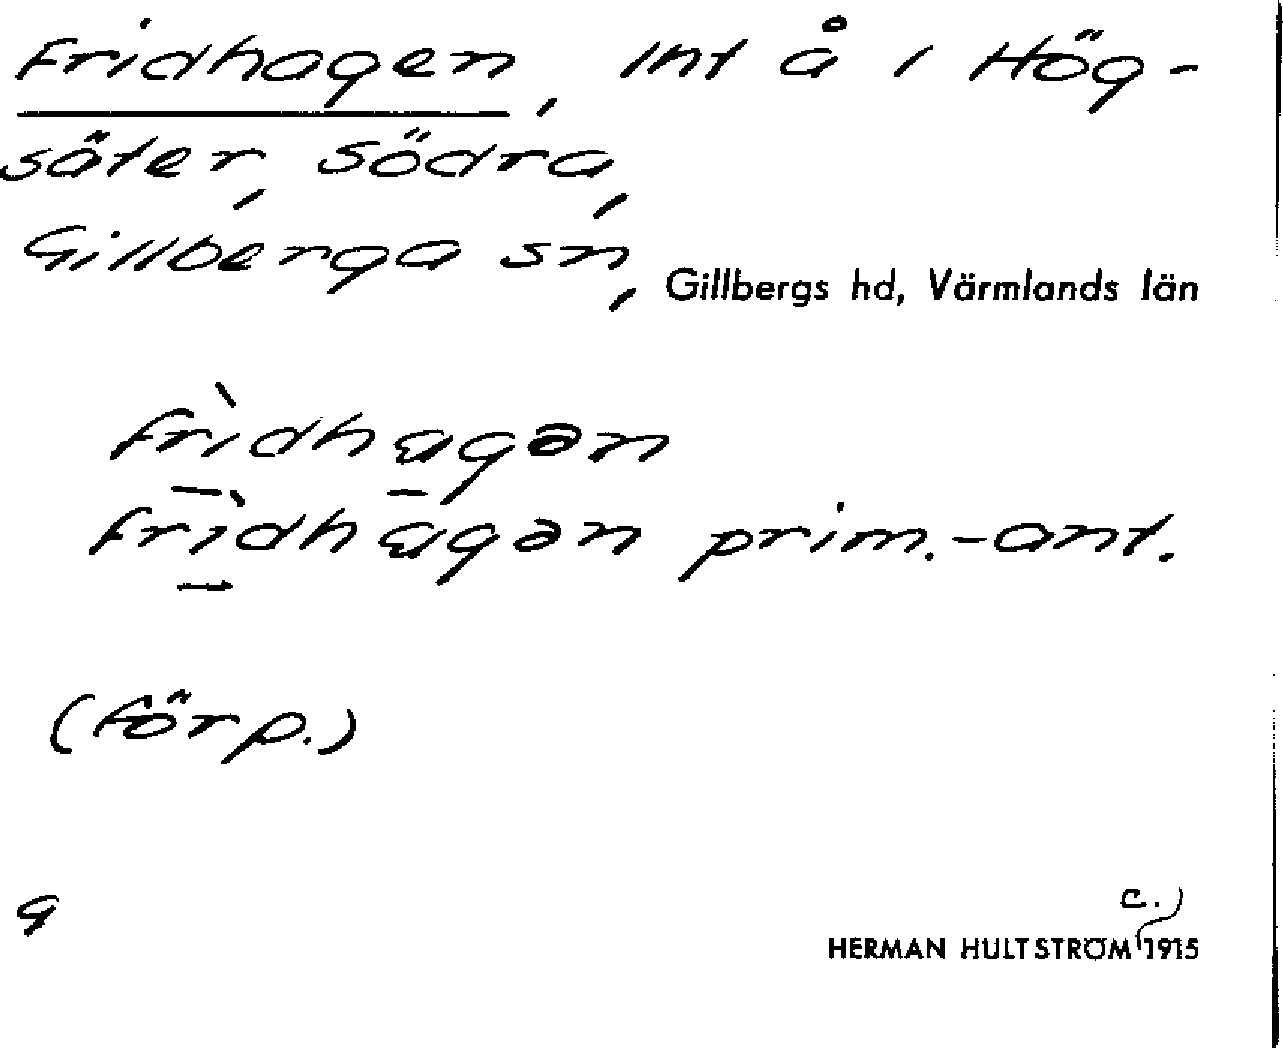 Fridhagen, int å i Hög-
säter, södra,
Gillberga sn, Gillbergs hd, Värmlands län
frìdhagən
frìdhagən prim.-ant.
(förp.)
9
c.)
HERMAN HULTSTRÖM 1915